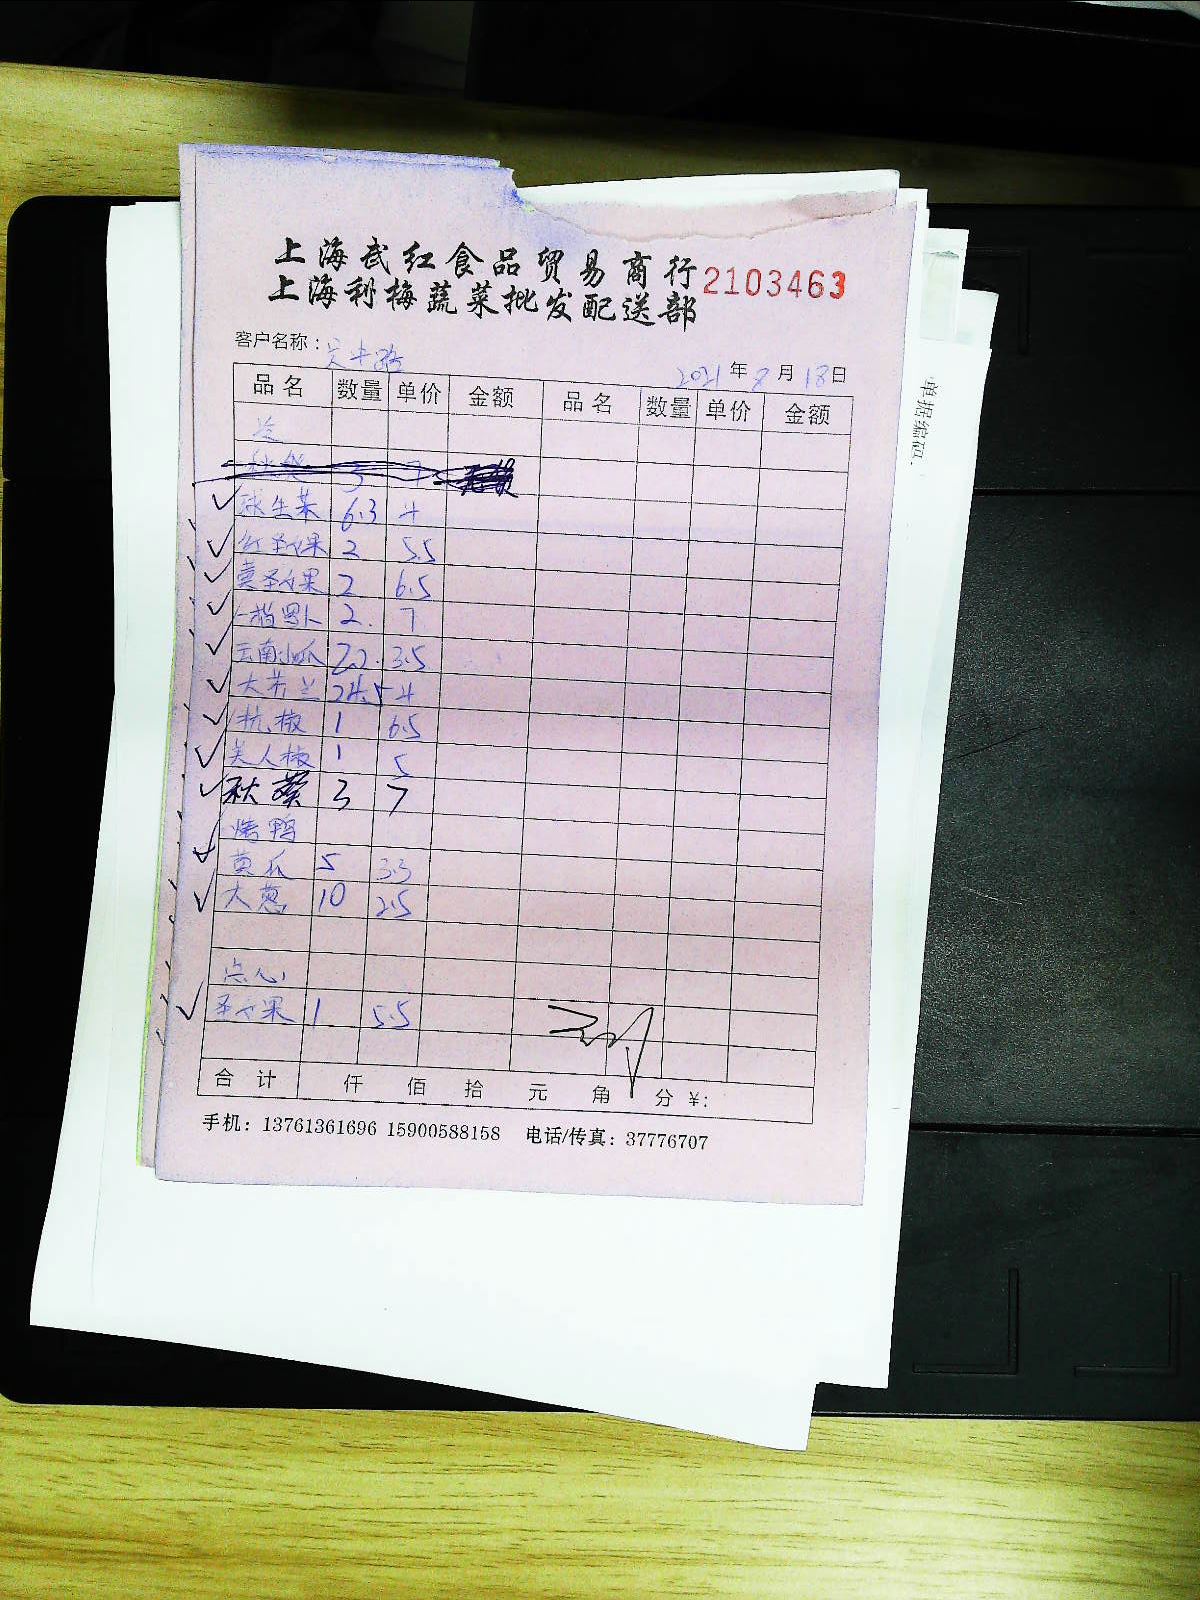 上海武红食品贸易商行 2103463
上海利梅蔬菜批发配送部
客户名称：吴中路
2021年8月18日
品名 数量 单价 金额 品名 数量 单价 金额
冷
球生菜 6.3 4
红圣女果 2 5.5
黄圣女果 2 6.5
罗卜 2. 7
云南小瓜 22. 3.5
大芥兰 24.5 4
杭椒 1 6.5
美人椒 1 5
秋葵 3 7
烤鸭
黄瓜 5 3.3
大葱 10 2.5
点心
圣女果 1 5.5
合计 仟 佰 拾 元 角 分 ¥:
手机：13761361696 15900588158 电话/传真：37776707
单据编码: